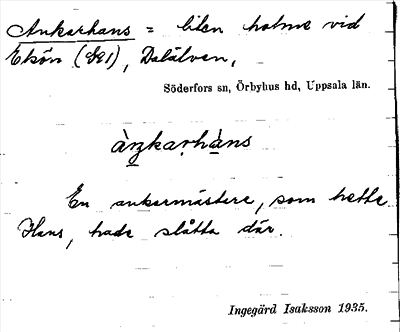 Ankarhans = liten holme vid
Ekön (Ӕ1), Dalälven,
Söderfors sn, Örbyhus hd, Uppsala län.
àŋkarhàns
En ankarmästare, som hette
Hans, hade slåtta där.
Ingegärd Isaksson 1935.